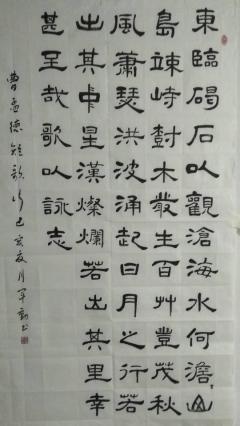 東臨碣石以觀滄海水何澹〻山
島竦峙樹木叢生百艸豐茂秋
風蕭瑟洪波涌起日月之行若
出其中星漢燦爛若出其里幸
甚至哉歌以詠志
曹孟德短歌行己亥夏月軍